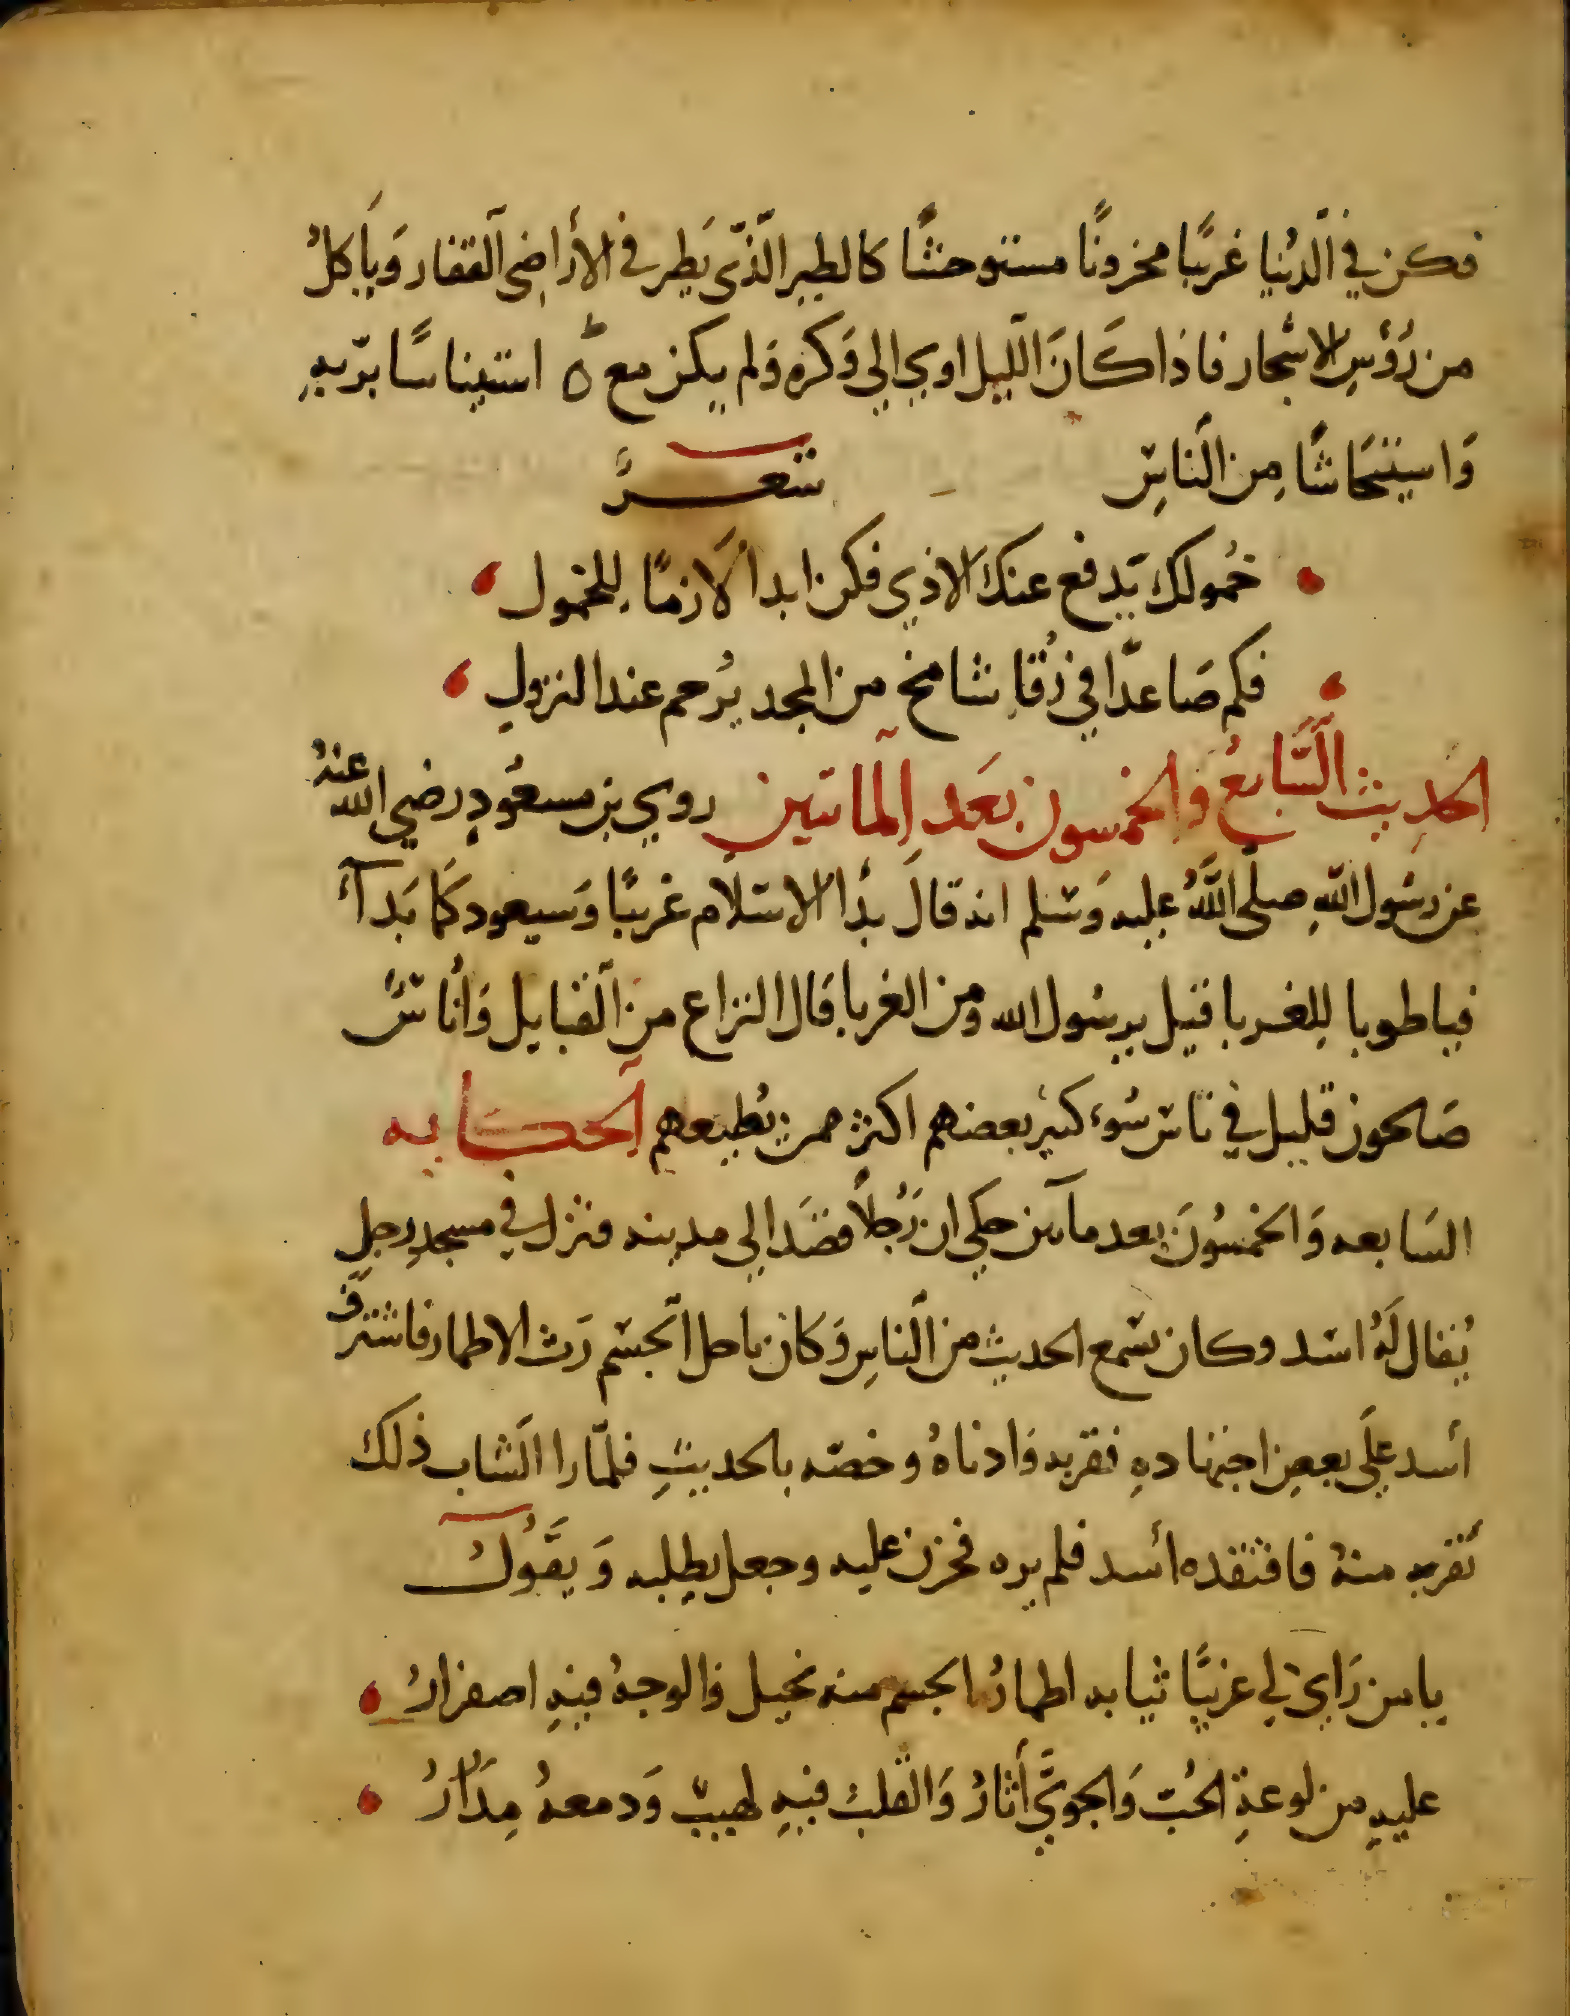 فكن في الَدُنيا غريًبا مخزونًا مستوحشًا كالطير الَذّي يَطير في الأراضِي اَلقفار وَياَكلُ
من رُؤسِ الاشجار فاذا كَانَ اللَيل اوي الي وَكره وَلم يكن مع ه استيناسًا بربهِ
وَاستيحَاشًا مِن الَناسِ شعـــرً
خُمولك يَدفع عنكَ الاذي فكن ابدا لاَزمًا لِلخمول
فكم صَاعدًا في رُقا شامخ من المجد يُرحم عند النزولِ
الحَدِيث السَّابعُ والخمسون بَعَد اِلماتين روي بن مسعُودٍ رضي الله عنهُ
عن رسَول اللهِ صلَّى اللَّهُ عليه وَسَلم انه قالَ بدُا الاسلَام غريبًا وَسيعود كَما بَدآءَ
فيا طوبا لِلغربا قيل يرسُول الله ومن الغربا قال النزاع من اَلقبايل وَأُناسً
صَالحون قليل في ناس سُوء كثير بعضهم اكثر ممن يُطيعهم اَلحكَايه
السَابعه وَالخمسُونَ بعد مآتين حكي ان رَجُلاً قصَد الي مدينه فنزل في مسجدِ رجلٍ
يُقال لَهُ اسَد وكان يسَمع الحديث من الَناسِ وَكان ناحل الَجسَم رَث الاطمار فاشرَف
أسد علَي بعض اجتهادهِ فقربه وَادناهُ وخصّه بالحديثِ فلمّا را الَشاب ذلك
تَقربه منهُ فافتقده أسد فلم يره فحزن عليه وجعل يطلبه وَ يقَوُل
يا من رَاي لي غريبًا ثيابه اطمارُ الجسم منه نحيل وَالوجهُ فيهِ اصفرارُ
عليهِ من لوعةِ الحُبّ وَالجويَ أثارُ وَالقلبُ فيهِ لهيبٌ وَدمعهُ مِدَرارُ